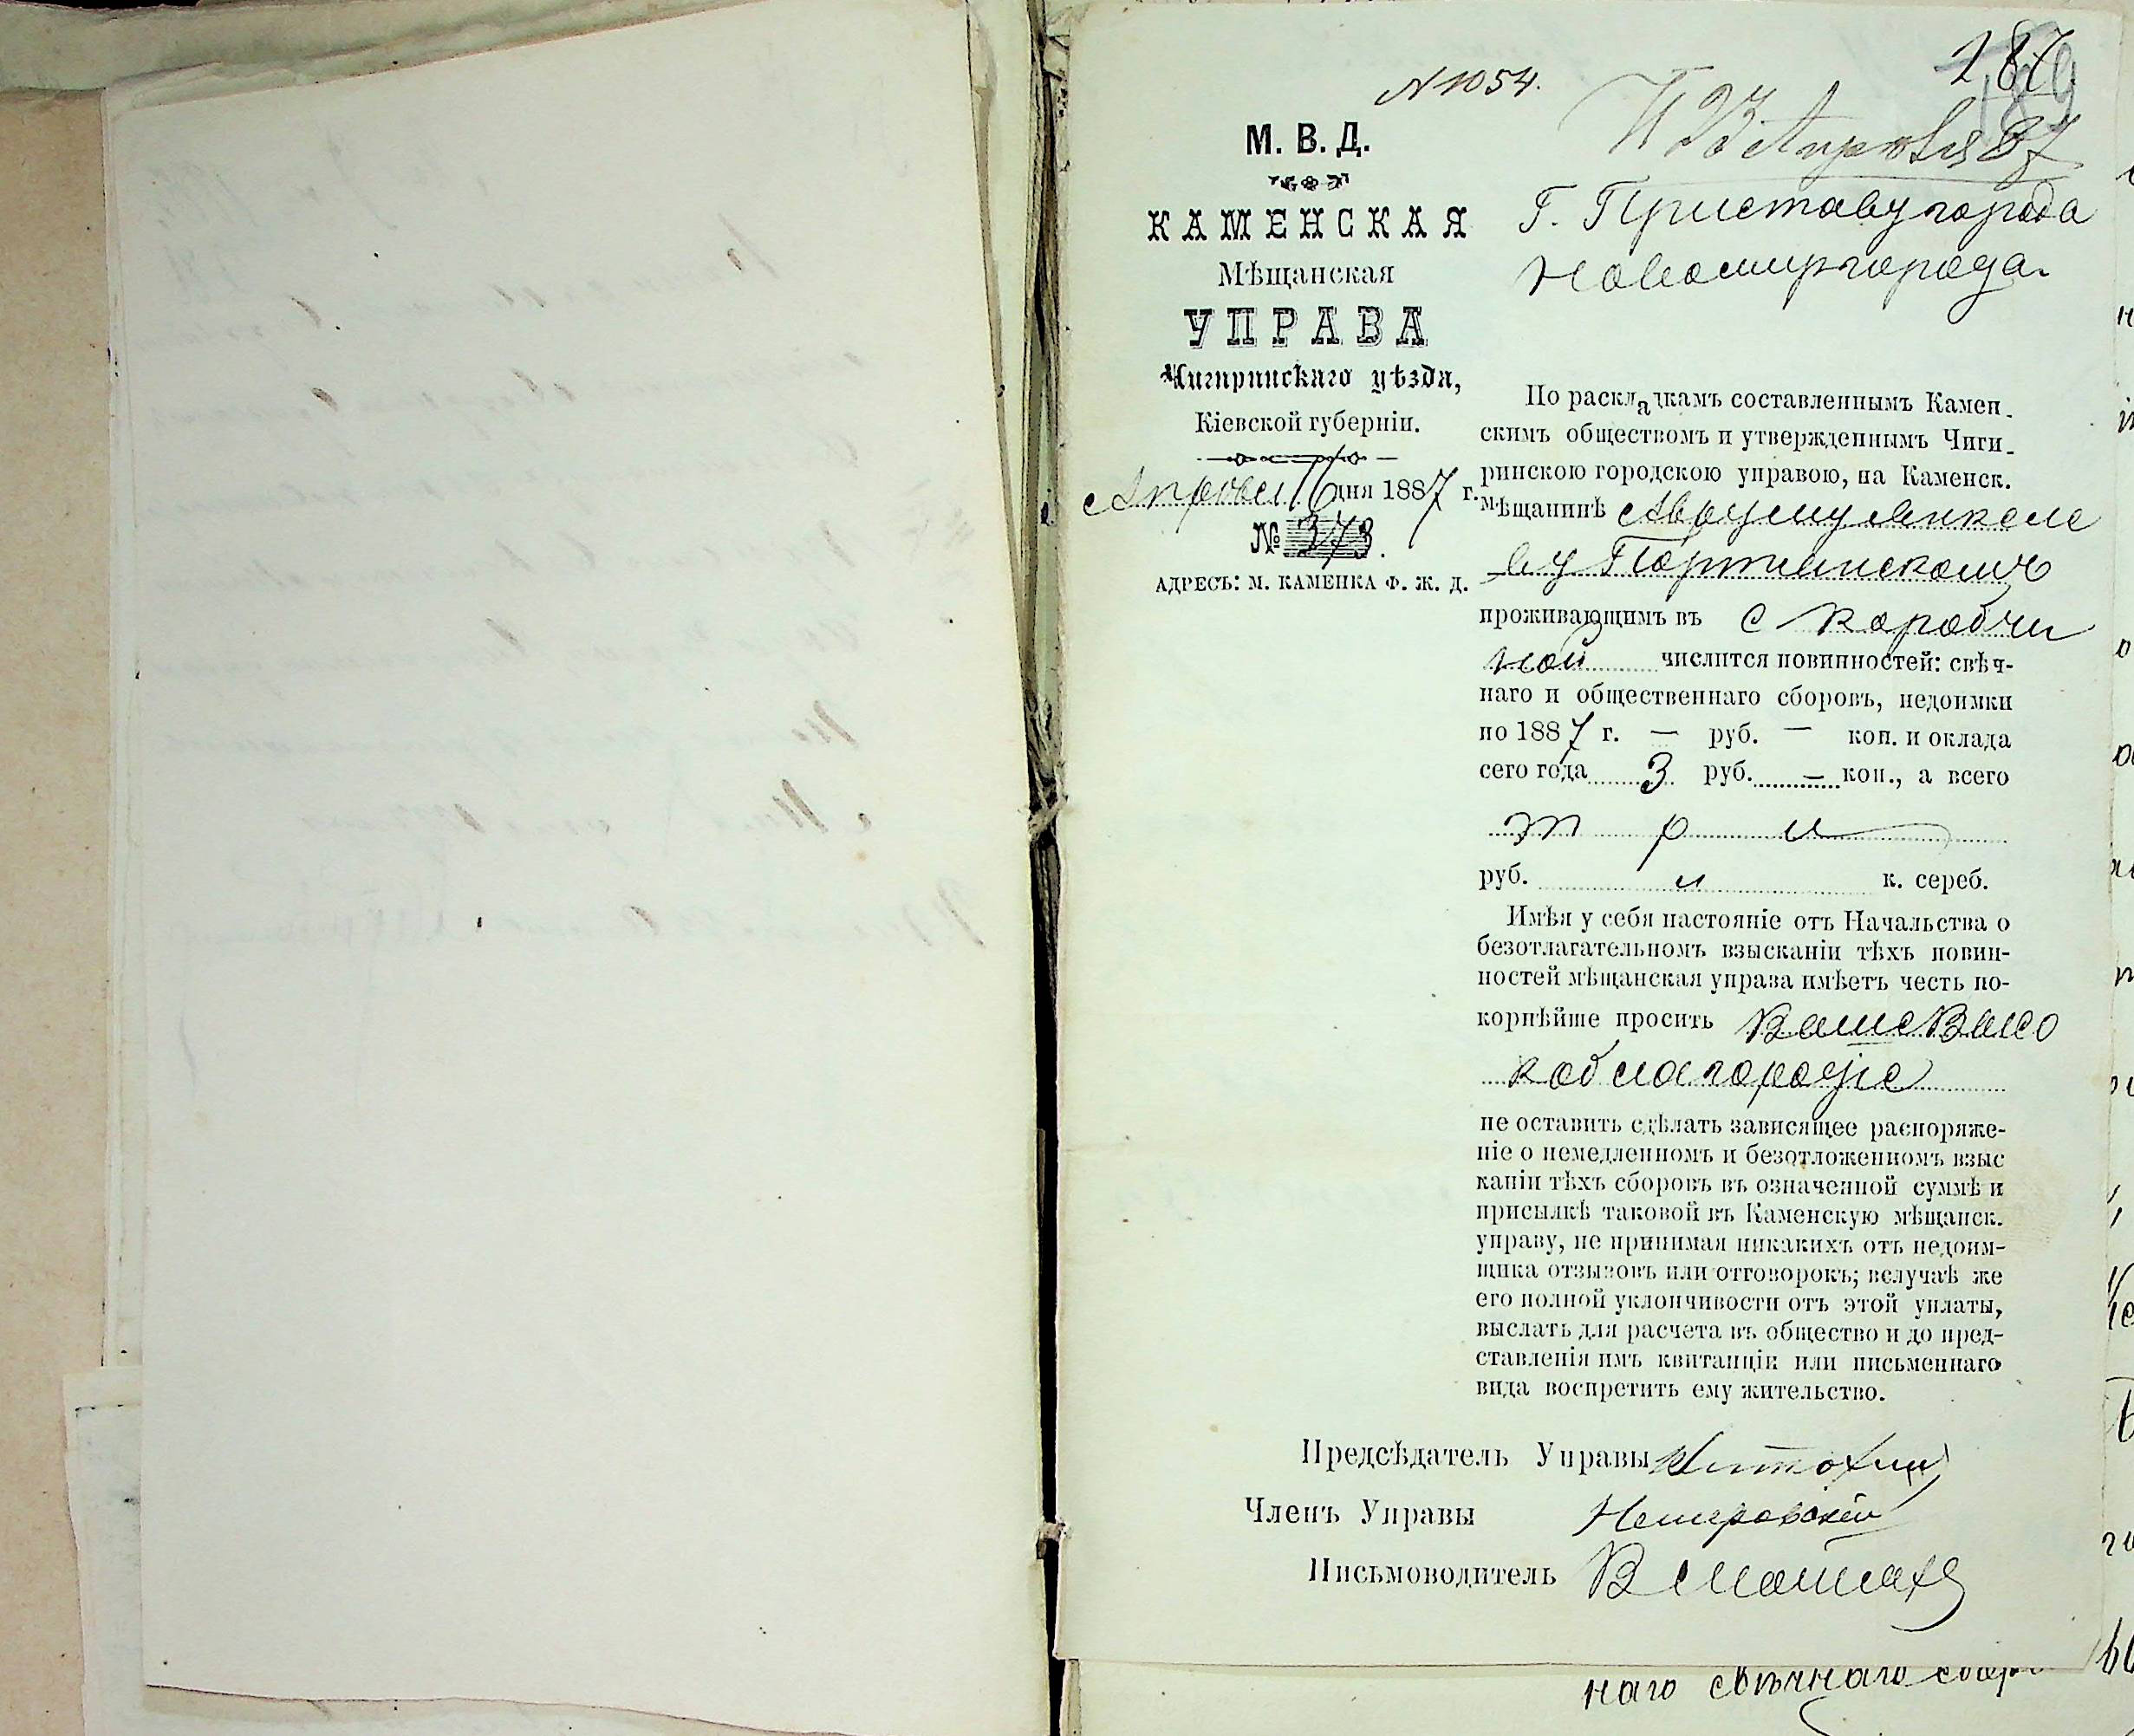 287
189
N 1054.
П 23 Апрѣля 87
М. В. Д.
КАМЕНСКАЯ
Мѣщанская
УПРАВА
Чигиринскаго уѣзда,
Кіевской губерніи.
Апрѣля 16 дня 1887 г.
№ 373.
АДРЕСЪ: М. КАМЕНКА Ф. Ж. Д.
Г. Приставу города
Новомиргорода.
По раскладкамъ составленнымъ Камен-
скимъ обществомъ и утвержденнымъ Чиги-
ринскою городскою управою, на Каменск.
мѣщанинѣ Аврумѣ Янкеле
ву Портянскомъ
проживающимъ въ с Коробчи
ной числится повинностей: свѣч-
наго и общественнаго сборовъ, недоимки
по 1887 г. — руб. — коп. и оклада
сего года 3 руб. — коп., а всего
три
руб. и к. сереб.
Имѣя у себя настояніе отъ Начальства о
безотлагательномъ взысканіи тѣхъ повин-
ностей мѣщанская управа имѣетъ честь по-
корнѣйше просить Ваше Высо
коблагородіе
не оставить сдѣлать зависящее распоряже-
ніе о немедленномъ и безотложенномъ взыс
каніи тѣхъ сборовъ въ означенной суммѣ и
присылкѣ таковой въ Каменскую мѣщанск.
управу, не принимая никакихъ отъ недоим-
щика отзывовъ или отговорокъ; вслучаѣ же
его полной уклончивости отъ этой уплаты,
выслать для расчета въ общество и до пред-
ставленія имъ квитанціи или письменнаго
вида воспретить ему жительство.
Предсѣдатель Управы
Членъ Управы
Письмоводитель
наго свѣчнаго сбора